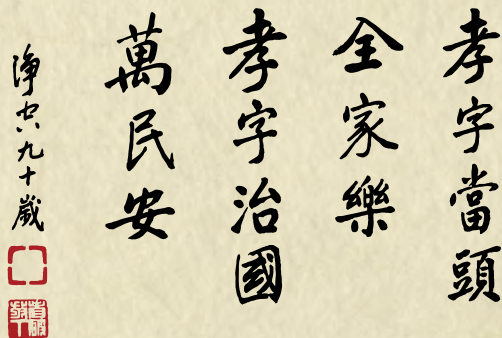 孝字當頭
全家樂
孝字治國
萬民安
淨空九十歲